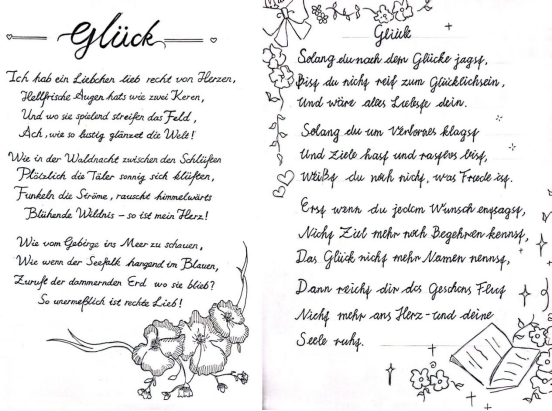 Glück
Ich hab ein Liebchen lieb recht von Herzen,
Hellfrische Augen hats wie zwei Keren,
Und wo sie spielend streifen das Feld,
Ach, wie so lustig glänzet die Welt!
Wie in der Waldnacht zwischen den Schlüften
Plötzlich die Täler sonnig sich klüften,
Funkeln die Ströme, rauscht himmelwärts
Blühende Wildnis – so ist mein Herz!
Wie vom Gebirge ins Meer zu schauen,
Wie wenn der Seefalk hangend im Blauen,
Zuruft der dammernden Erd wo sie blieb?
So unermeßlich ist rechte Lieb!
Glück
Solang du nach dem Glücke jagst,
Bist du nicht reif zum Glücklichsein,
Und wäre alles Liebste dein.
Solang du um Verlornes klagst
Und Ziele hast und rastlos bist,
Weißt du noch nicht, was Friede ist.
Erst wenn du jedem Wunsch entsagst,
Nicht Ziel mehr noch Begehren kennst,
Das Glück nicht mehr Namen nennst,
Dann reicht dir des Geschens Flut
Nicht mehr ans Herz - und deine
Seele ruht.